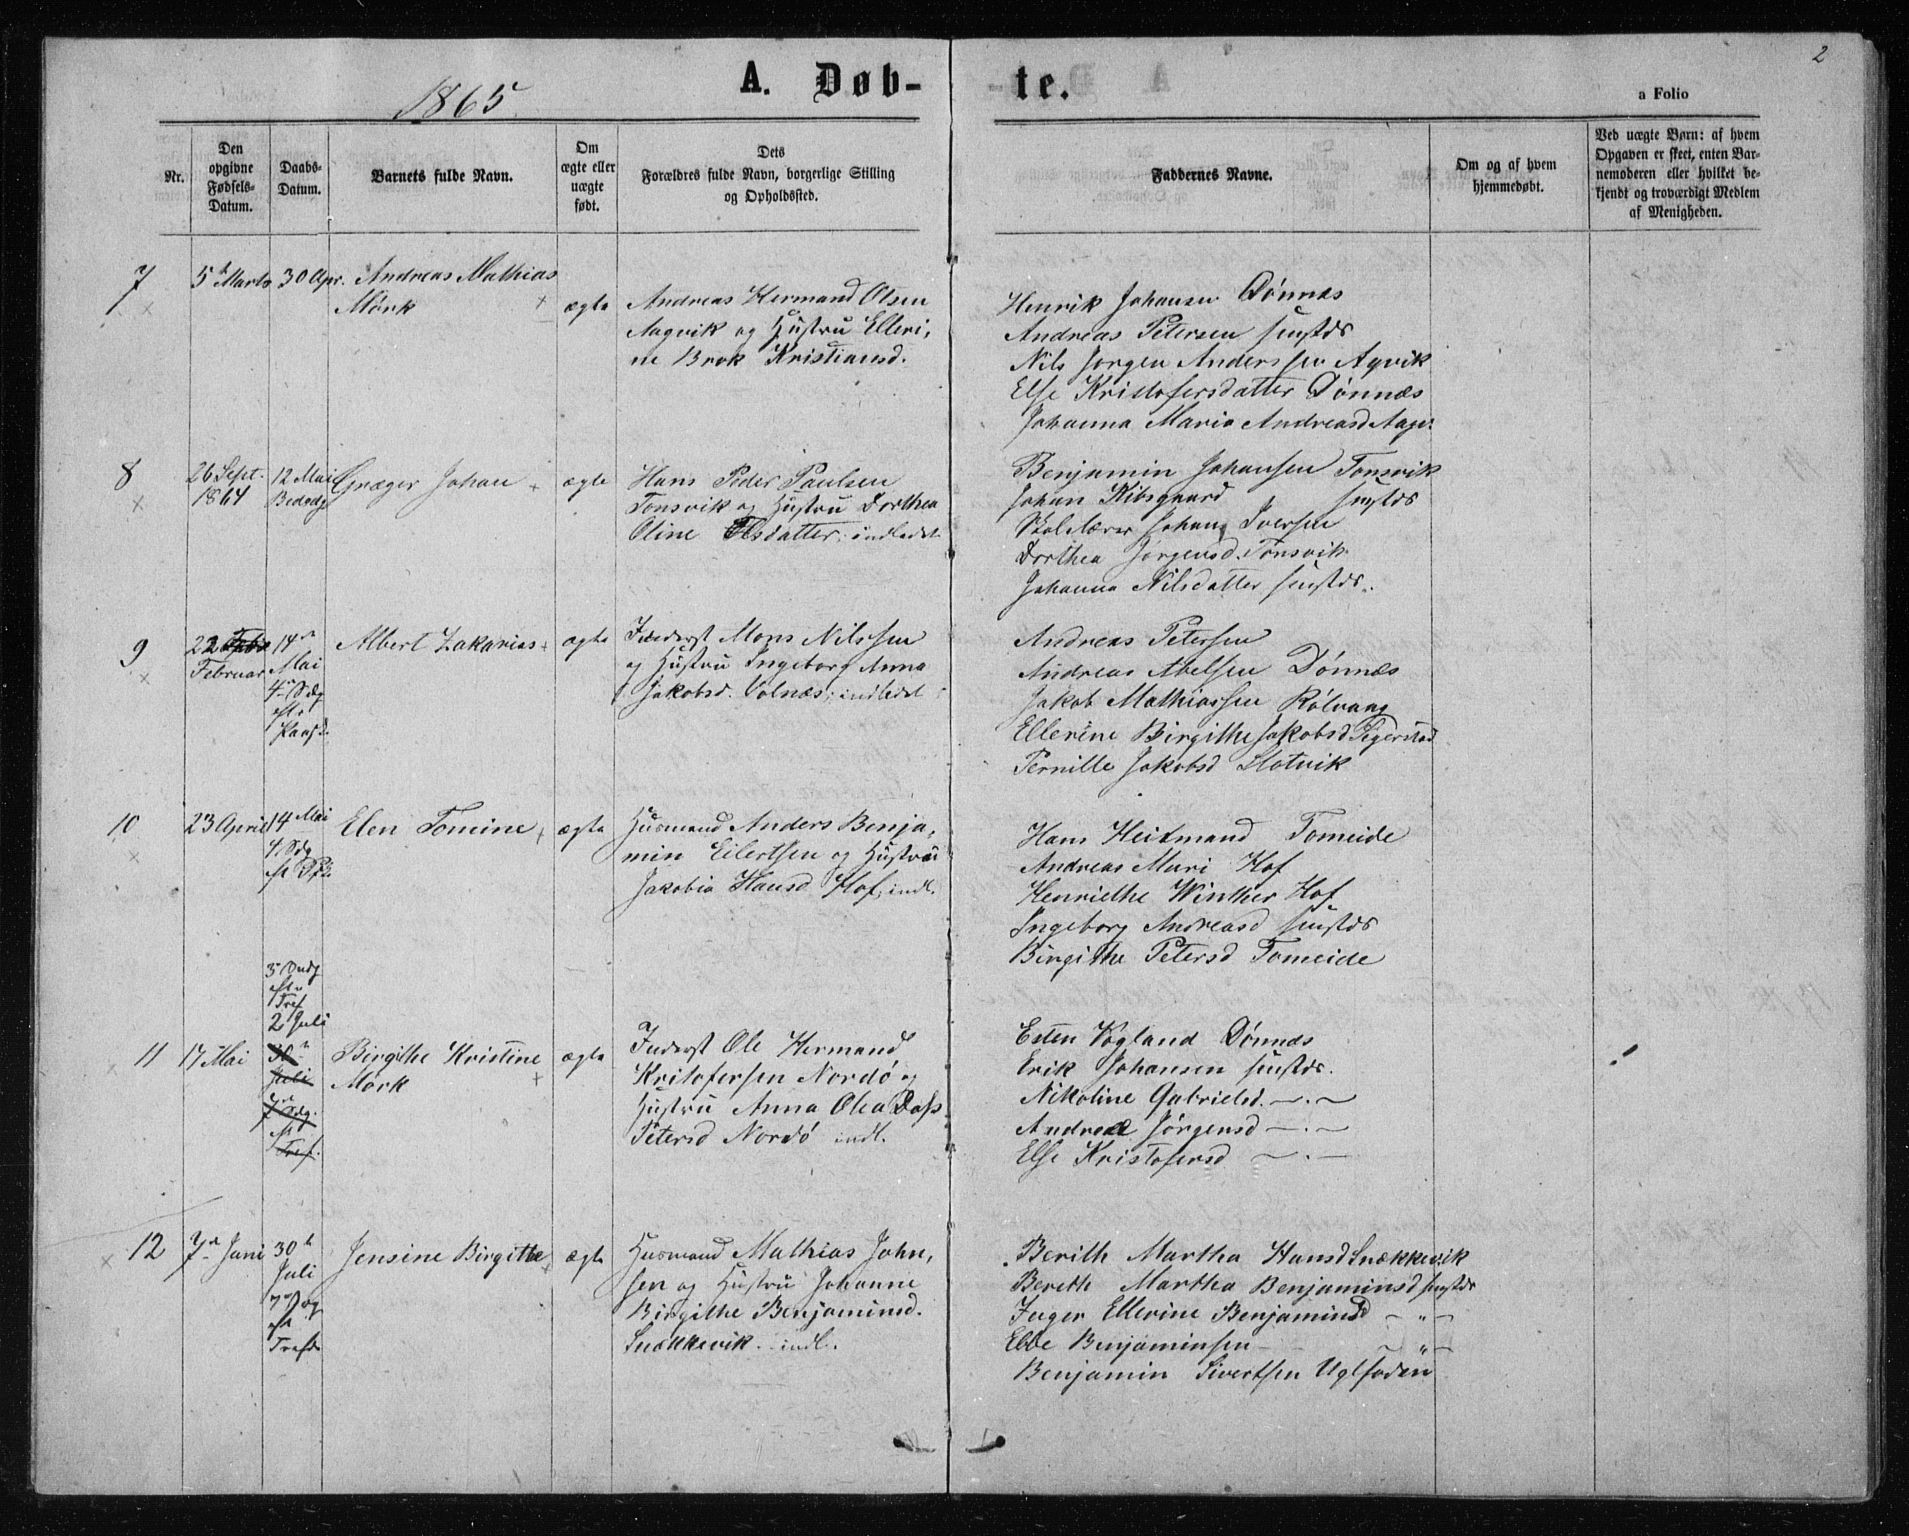 2
1865
A. Døb-
te.
a Folio
Nr.
Den
opgivne
Fødsels-
Datum.
Daabs-
Datum.
Barnets fulde Navn.
Om
ægte eller
uægte
født.
Dets
Forældres fulde Navn, borgerlige Stilling
og Opholdssted.
Faddernes Navne.
Om og af hvem
hjemmedøbt.
Ved uægte Børn: af hvem
Opgaven er skeet, enten Bar-
nemoderen eller hvilket be-
kjendt og troværdigt Medlem
af Menigheden.
7
5 Marts
30 Apr.
Andreas Mathias
Mørk
ægte
Andreas Hermand Olsen
Aagvik og Hustru Elleri,
ne Brok Kristiansd.
Henrik Johansen Dönnæs
Andreas Petersen sustds
Nils Jørgen Anderssen Agvik
Else Kristofersdatter Dönnæs
Johanna Maria Andreasd Aagv.
8
26 Sept.
1864
12 Mai
Bededg
Græger Johan
ægte
Hans Peder Paulsen
Tonsvik og Hustru Dorthea
Oline Elsdatter. indledet
Benjamin Johansen Tonsvik
Johan Kibsgaard sustds
Skolelærer Johan Iversen
Dorthea Jörgensd. Tonsvik
Johanna Nilsdatter sustds.
9
22 Febr
Februar
14
Mai
4 Sdg
eft.
Paask.
Albert Zakarias
ægte
Inderst Mons Nilssen
og Hustru Ingeborg Anna
Jakobsd. Volnæs; indledet
Andreas Petersen
Andreas Abelsen Dönnæs
Jakob Mathiassen Rölvaag
Ellerine Birgithe Jakobsd Tegerstad
Pernille Jakobsd Slotvik
10
23 April
14 Mai
4. Sdg
eft Psk.
Elen Tomine
ægte
Husmand Anders Benja,
min Eilertsen og Hustru
Jakobia Hansd Hof; indl.
Hans Heitmand Tomeide
Andreas Mari Hof
Henriethe Winther Hof
Ingeborg Andreasd sustds
Birgithe Petersd Tomeide
11
17 Mai
3 Sndg
eft.
Tref
2 Juli
30
Juli
7 Sdg.
eft
Tref.
Birgithe Kristine
Mørk
ægte
Inderst Ole Hermand
Kristofersen Nordö og
Hustru Anna Olea Dass
Petersd Nordö indl.
Esten Vogland Dönnæs
Erik Johansen sustds.
Nikoline Gabrielsd. —.—
Andrea Jörgensd —.—
Else Kristofersd —.—
12
7 Juni
30
Juli
7 Sdg
eft
Trefdr
Jensine Birgitte
ægte
Husmand Mathias John,
sen og Hustru Johanne
Birgithe Benjaminsd.
Snekkevik. indl.
Berith Martha Hansd Snækkevik
Bereth Martha Benjaminsd sustds
Inger Ellerine Benjaminsd — " —
Ebbe Benjaminsen — " —
Benjamin Sivertsen Uglsoden